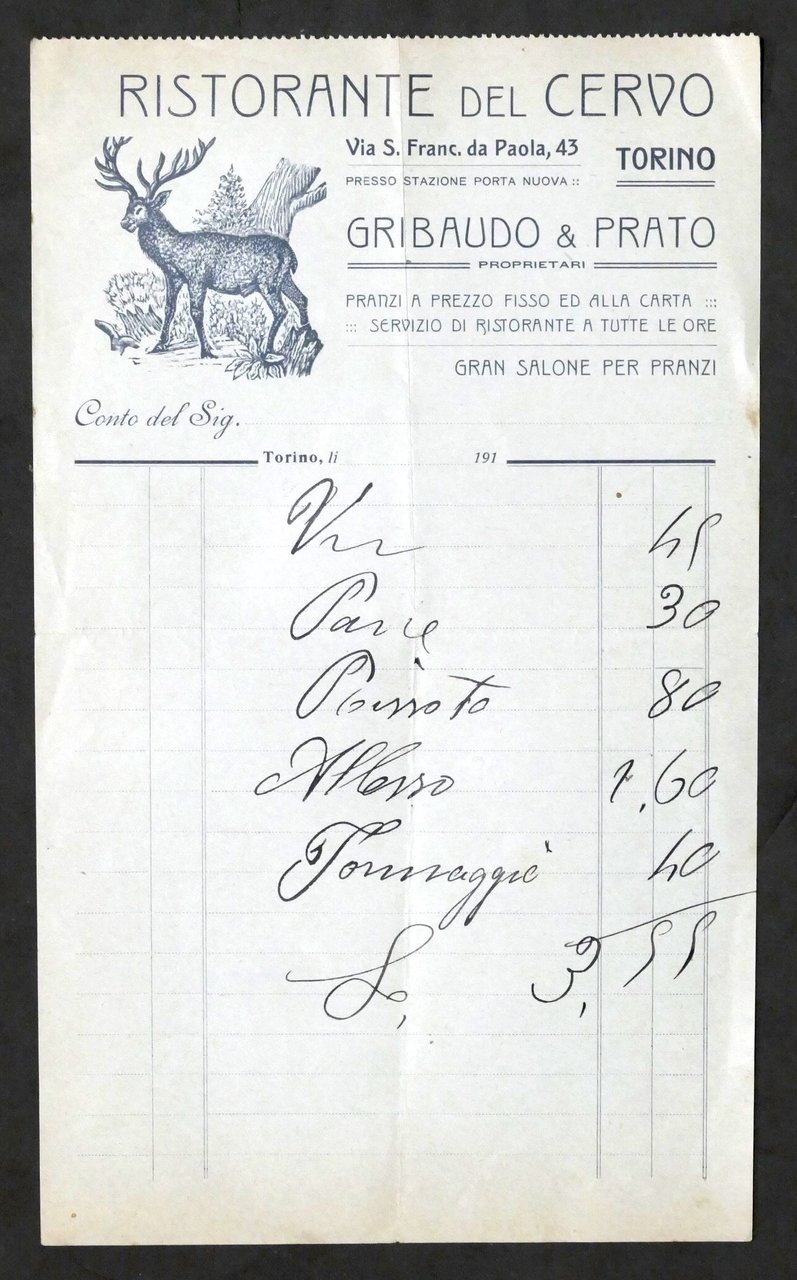 RISTORANTE DEL CERVO
Via S. Franc. da Paola, 43
TORINO
PRESSO STAZIONE PORTA NUOVA ::
GRIBAUDO & PRATO
PROPRIETARI
PRANZI A PREZZO FISSO ED ALLA CARTA :::
::: SERVIZIO DI RISTORANTE A TUTTE LE ORE
GRAN SALONE PER PRANZI
Conto del Sig.
Torino, li 191
45
Pane 30
80
Allesso 1,60
Formaggio 40
L, 3,55